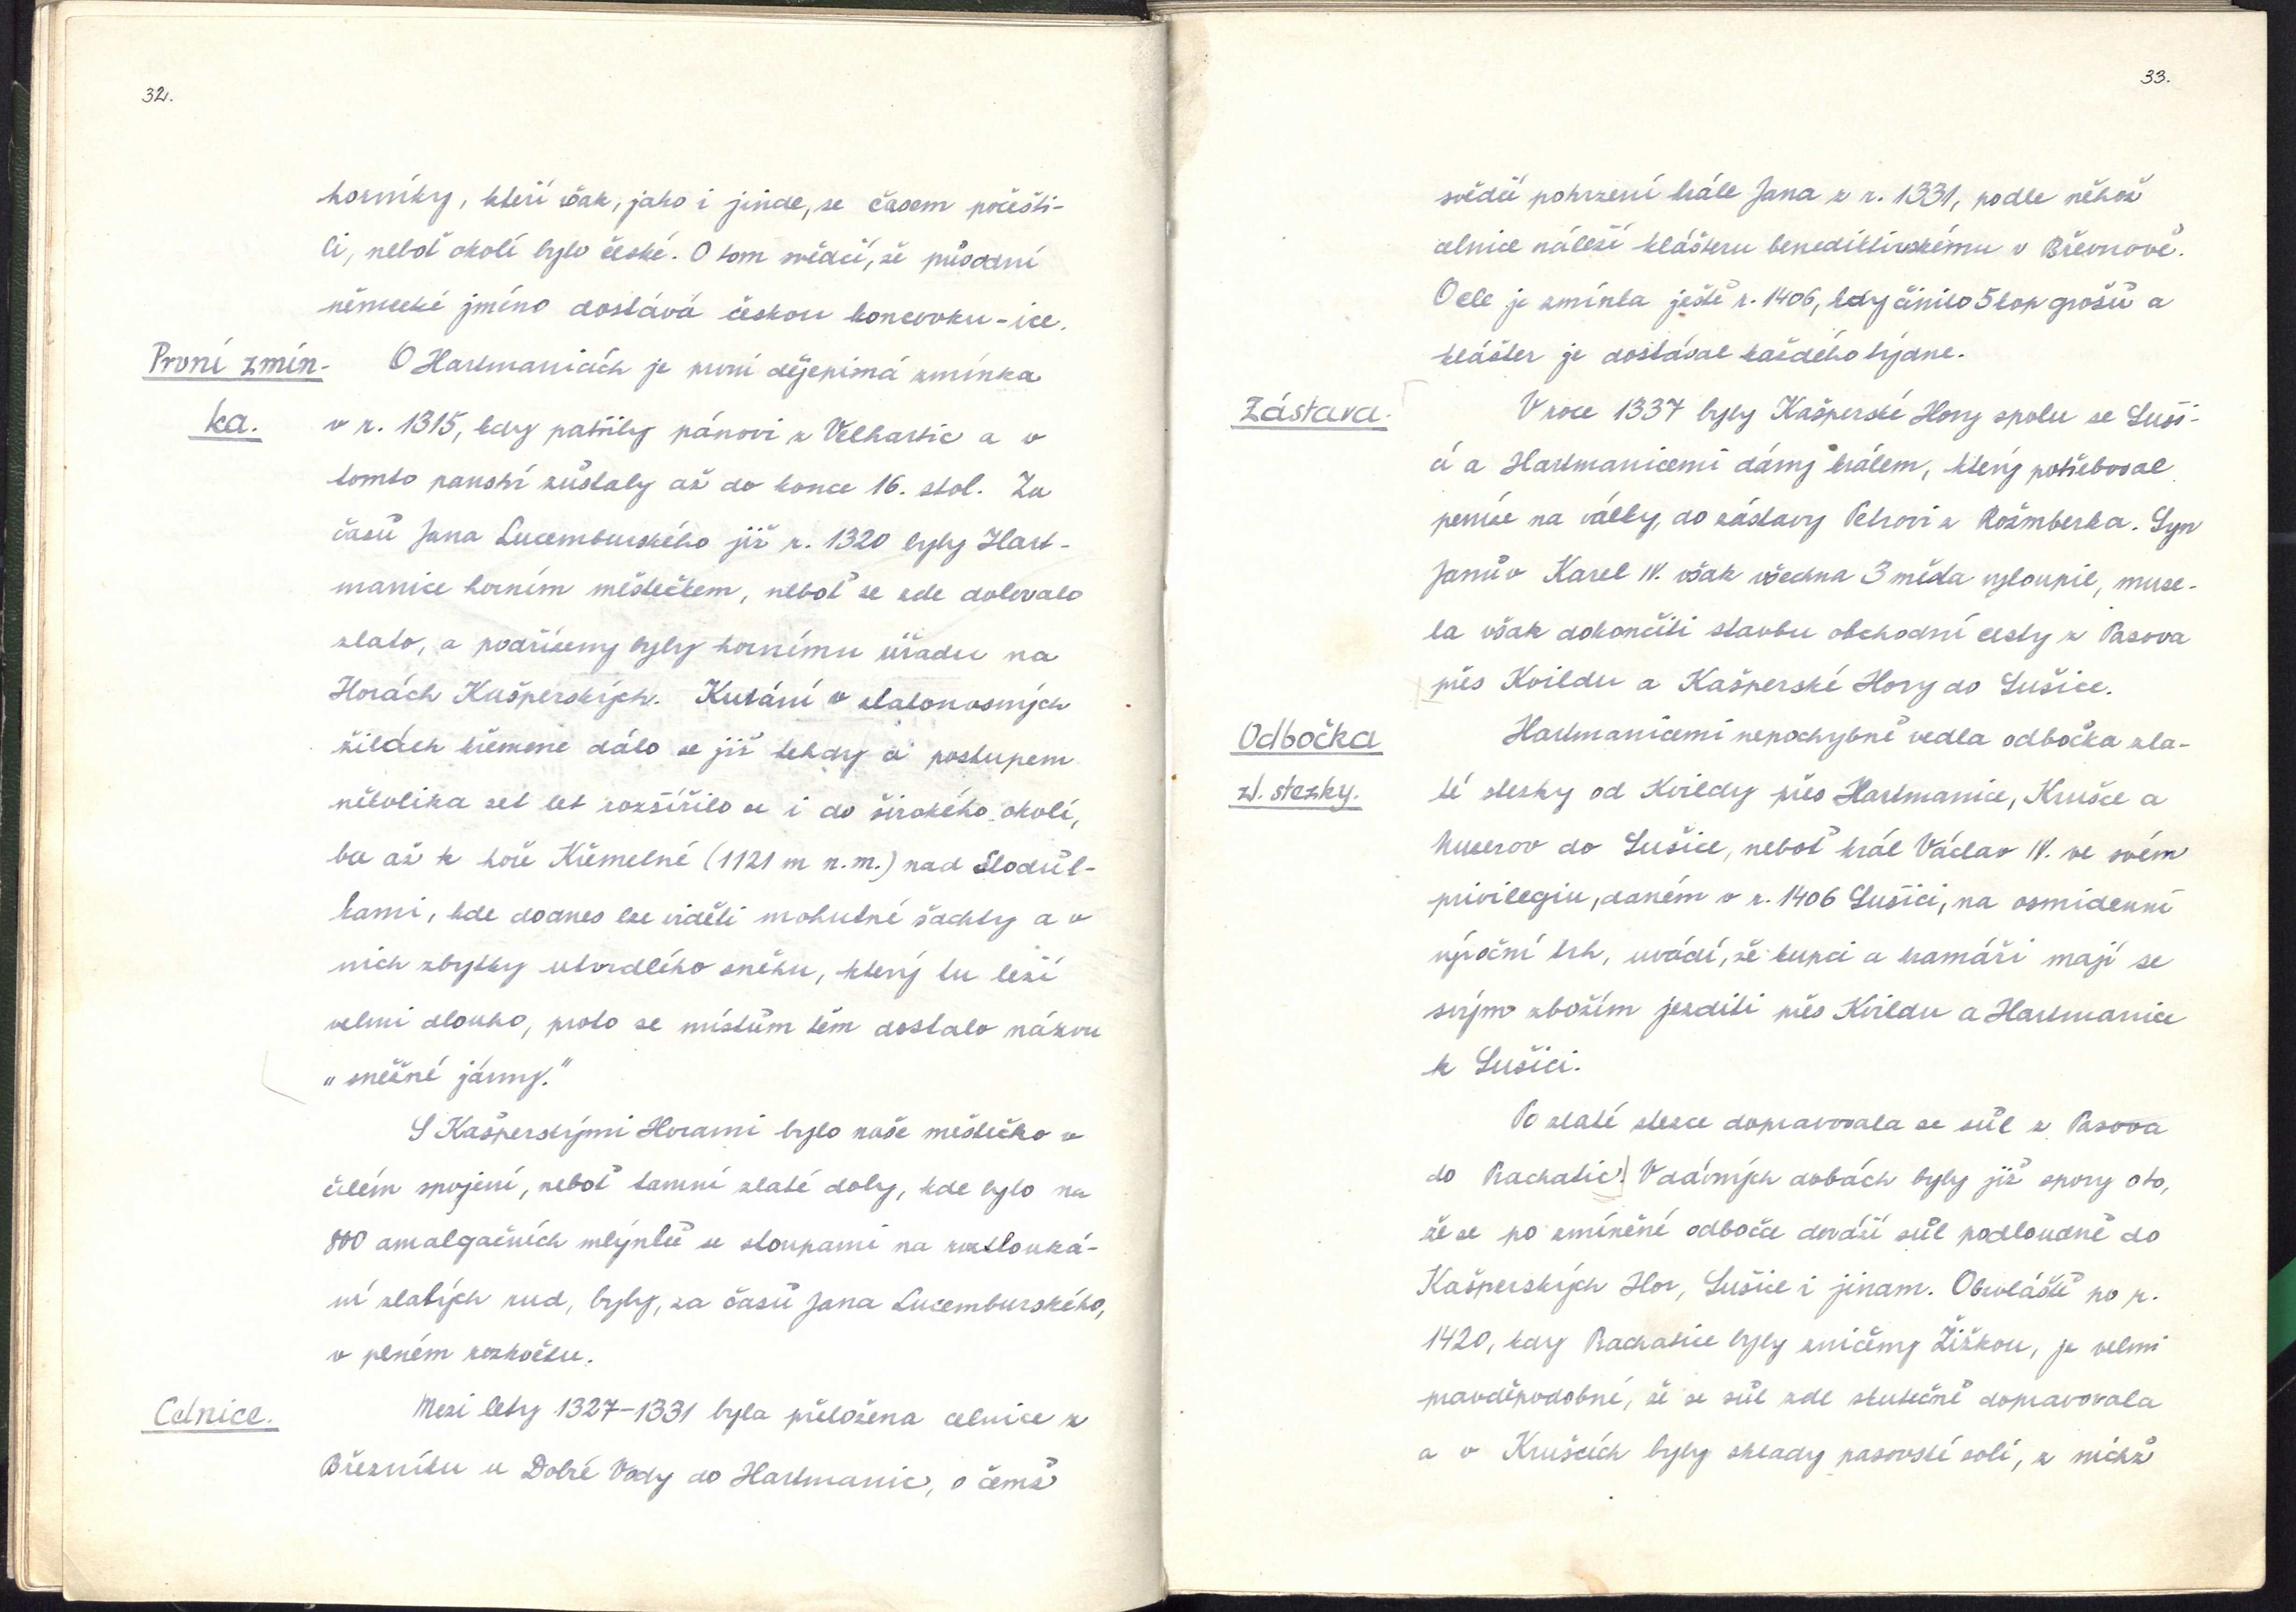 32.
horníky, kteří však, jako i jinde, se časem počešti-
li, neboť okolí bylo české. O tom svědčí, že původní
německé jméno dostává českou koncovku -ice.
První zmín-
ka.
O Hartmanicích je první dějepisná zmínka
v r. 1315, kdy patřily pánovi z Velhartic a v
tomto panství zůstaly až do konce 16. stol. Za
časů Jana Lucemburského již r. 1320 byly Hart-
manice horním městečkem, neboť se zde dolovalo
zlato, a podřízeny byly hornímu úřadu na
Horách Kašperských. Kutání v zlatonosných
žilách křemene dálo se již tehdy a postupem
několika set let rozšířilo se i do širokého okolí,
ba až k hoře Křemelné (1121 m n.m.) nad Stodůl-
kami, kde dodnes lze viděti mohutné šachty a v
nich zbytky utvrdlého sněhu, který tu leží
velmi dlouho, proto se místům těm dostalo názvu
„sněžné jámy."
S Kašperskými Horami bylo naše městečko v
čilém spojení, neboť tamní zlaté doly, kde bylo na
800 amalgačních mlýnků se stoupami na roztlouká-
ní zlatých rud, byly, za časů Jana Lucemburského,
v plném rozkvětu.
Celnice.
Mezi lety 1327-1331 byla přeložena celnice z
Březníku u Dobré Vody do Hartmanic, o čemž
33.
svědčí potvrzení krále Jana z r. 1331, podle něhož
celnice náleží klášteru benediktinskému v Břevnově.
O cle je zmínka ještě r. 1406, kdy činilo 5 kop grošů a
klášter je dostával každého týdne.
Zástava.
V roce 1337 byly Kašperské Hory spolu se Suši-
cí a Hartmanicemi dány králem, který potřeboval
peníze na války, do zástavy Petrovi z Rožmberka. Syn
Janův Karel IV. však všechna 3 města vyloupil, muse-
la však dokončiti stavbu obchodní cesty z Pasova
přes Kvildu a Kašperské Hory do Sušice.
Odbočka
zl. stezky.
Hartmanicemi nepochybně vedla odbočka zla-
té stezky od Kvildy přes Hartmanice, Krušce a
do Sušice, neboť král Václav IV. ve svém
privilegiu, daném v r. 1406 Sušici, na osmidenní
výroční trh, uvádí, že kupci a kramáři mají se
svým zbožím jezditi přes Kvildu a Hartmanice
k Sušici.
Po zlaté stezce dopravovala se sůl z Pasova
do Prachatic. V dávných dobách byly již spory o to,
že se po zmíněné odbočce dováží sůl podloudně do
Kašperských Hor, Sušice i jinam. Obzvláště po r.
1420, kdy Prachatice byly zničeny Žižkou, je velmi
pravděpodobné, že se sůl zde skutečně dopravovala
a v Krušcích byly sklady pasovské soli, z nichž